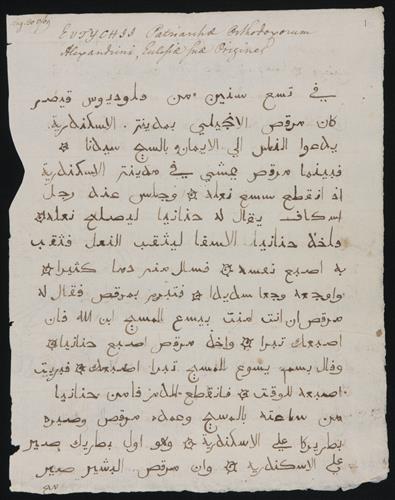 EUTYCHII Patriarchæ Orthodoxorum
Alexandrini, Ecclesiæ suæ Origines
1
في تسع سنين من قلوديوس قيصر
كان مرقص الانجيلي بمدينة الاسكندرية
يدعوا الناس الي الايمان بالمسيح سيدنا
فبينما مرقص يمشي في مدينة الاسكندرية
اذ انقطع شسع نعله وجلس عند رجل
اسكاف يقال له حنانيا ليصلح نعله
واخذ حنانيا الاشفا ليثقب النعل فثقب
به اصبع نفسه فسال منه دما كثيرا
واوجعه وجعا شديدا فتبرم بمرقص فقال له
مرقص ان انت امنت بيسوع المسيح ابن الله فان
اصبعك تبرا واخذ مرقص اصبع حنانيا
وقال بسم يسوع المسيح تبرا اصبعك فبريت
اصبعه للوقت فانقطع الدم فامن حنانيا
من ساعته بالمسيح وعمده مرقص وصيره
بطريركا علي الاسكندرية وهو اول بطريك صير
علي الاسكندرية وان مرقص البشير صير